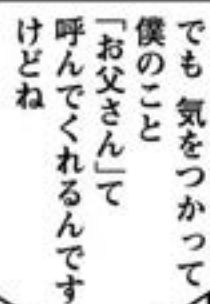 でも 気をつかって
僕のこと
「お父さん」て
呼んでくれるんです
けどね